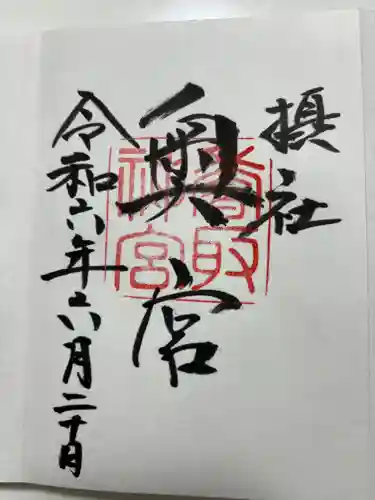 摂社
奥宮
香取神宮
令和六年六月二十日